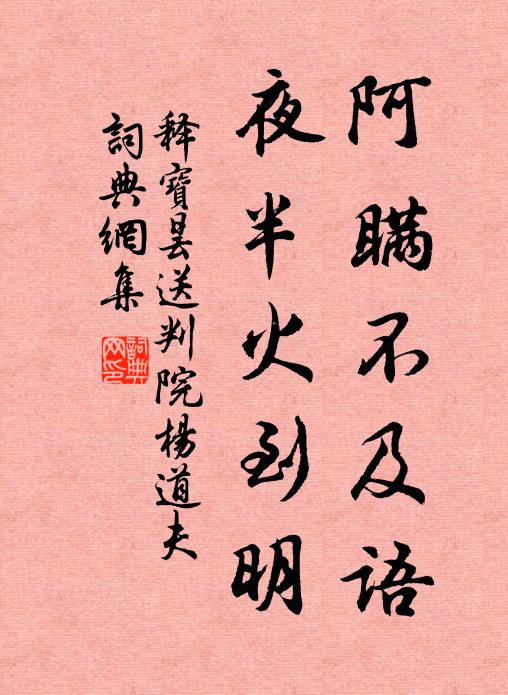 阿瞞不及語
夜半火到明
释寶曇送判院楊道夫
詞典網集
詞典網印